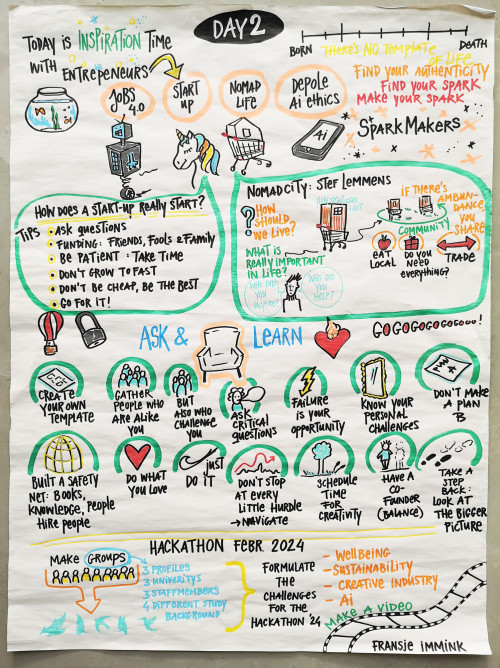 DAY 2
TODAY IS INSPIRATION TIME
WITH ENTREPENEURS
BORN
DEATH
THERE'S NO TEMPLATE
OF LIFE
FIND YOUR AUTHENTICITY
FIND YOUR SPARK
MAKE YOUR SPARK
SPARKMAKERS
JOBS
4.0
START
UP
NOMAD
LIFE
DEPOLE
Ai ETHICS
Ai
HOW DOES A START-UP REALLY START?
TIPS
ASK QUESTIONS
FUNDING: FRIENDS, FOOLS & FAMILY
BE PATIENT: TAKE TIME
DON'T GROW TO FAST
DON'T BE CHEAP, BE THE BEST
GO FOR IT!
NOMADCITY: STEF LEMMENS
? HOW
SHOULD
WE LIVE?
WHAT IS
REALLY IMPORTANT
IN LIFE?
WHO DID
YOU
INSPIRE?
WHO DID
YOU
HELP?
IF THERE'S
ABUN-
DANCE
YOU
SHARE
COMMUNITY
EAT
LOCAL
DO YOU
NEED
EVERYTHING?
TRADE
ASK & LEARN
GOGOGOGOGOGO!
CREATE
YOUR OWN
TEMPLATE
GATHER
PEOPLE WHO
ARE ALIKE
YOU
BUT
ALSO WHO
CHALLENGE
YOU
ASK
CRITICAL
QUESTIONS
FAILURE
IS YOUR
OPPORTUNITY
KNOW YOUR
PERSONAL
CHALLENGES
DON'T MAKE
A PLAN
B
BUILT A SAFETY
NET: BOOKS,
KNOWLEDGE, PEOPLE
HIRE PEOPLE
DO WHAT
YOU LOVE
JUST
DO IT
DON'T STOP
AT EVERY
LITTLE HURDLE
→ NAVIGATE
SCHEDULE
TIME
FOR
CREATIVITY
HAVE A
CO-
FOUNDER
(BALANCE)
TAKE A
STEP
BACK:
LOOK AT
THE BIGGER
PICTURE
HACKATHON FEBR. 2024
MAKE GROUPS
3 PROFILES
3 UNIVERSITYS
3 STAFFMEMBERS
4 DIFFERENT STUDY
BACKGROUND
FORMULATE
THE
CHALLENGES
FOR THE
HACKATHON '24
- WELLBEING
- SUSTAINABILITY
- CREATIVE INDUSTRY
- Ai
MAKE A VIDEO
FRANSJE IMMINK